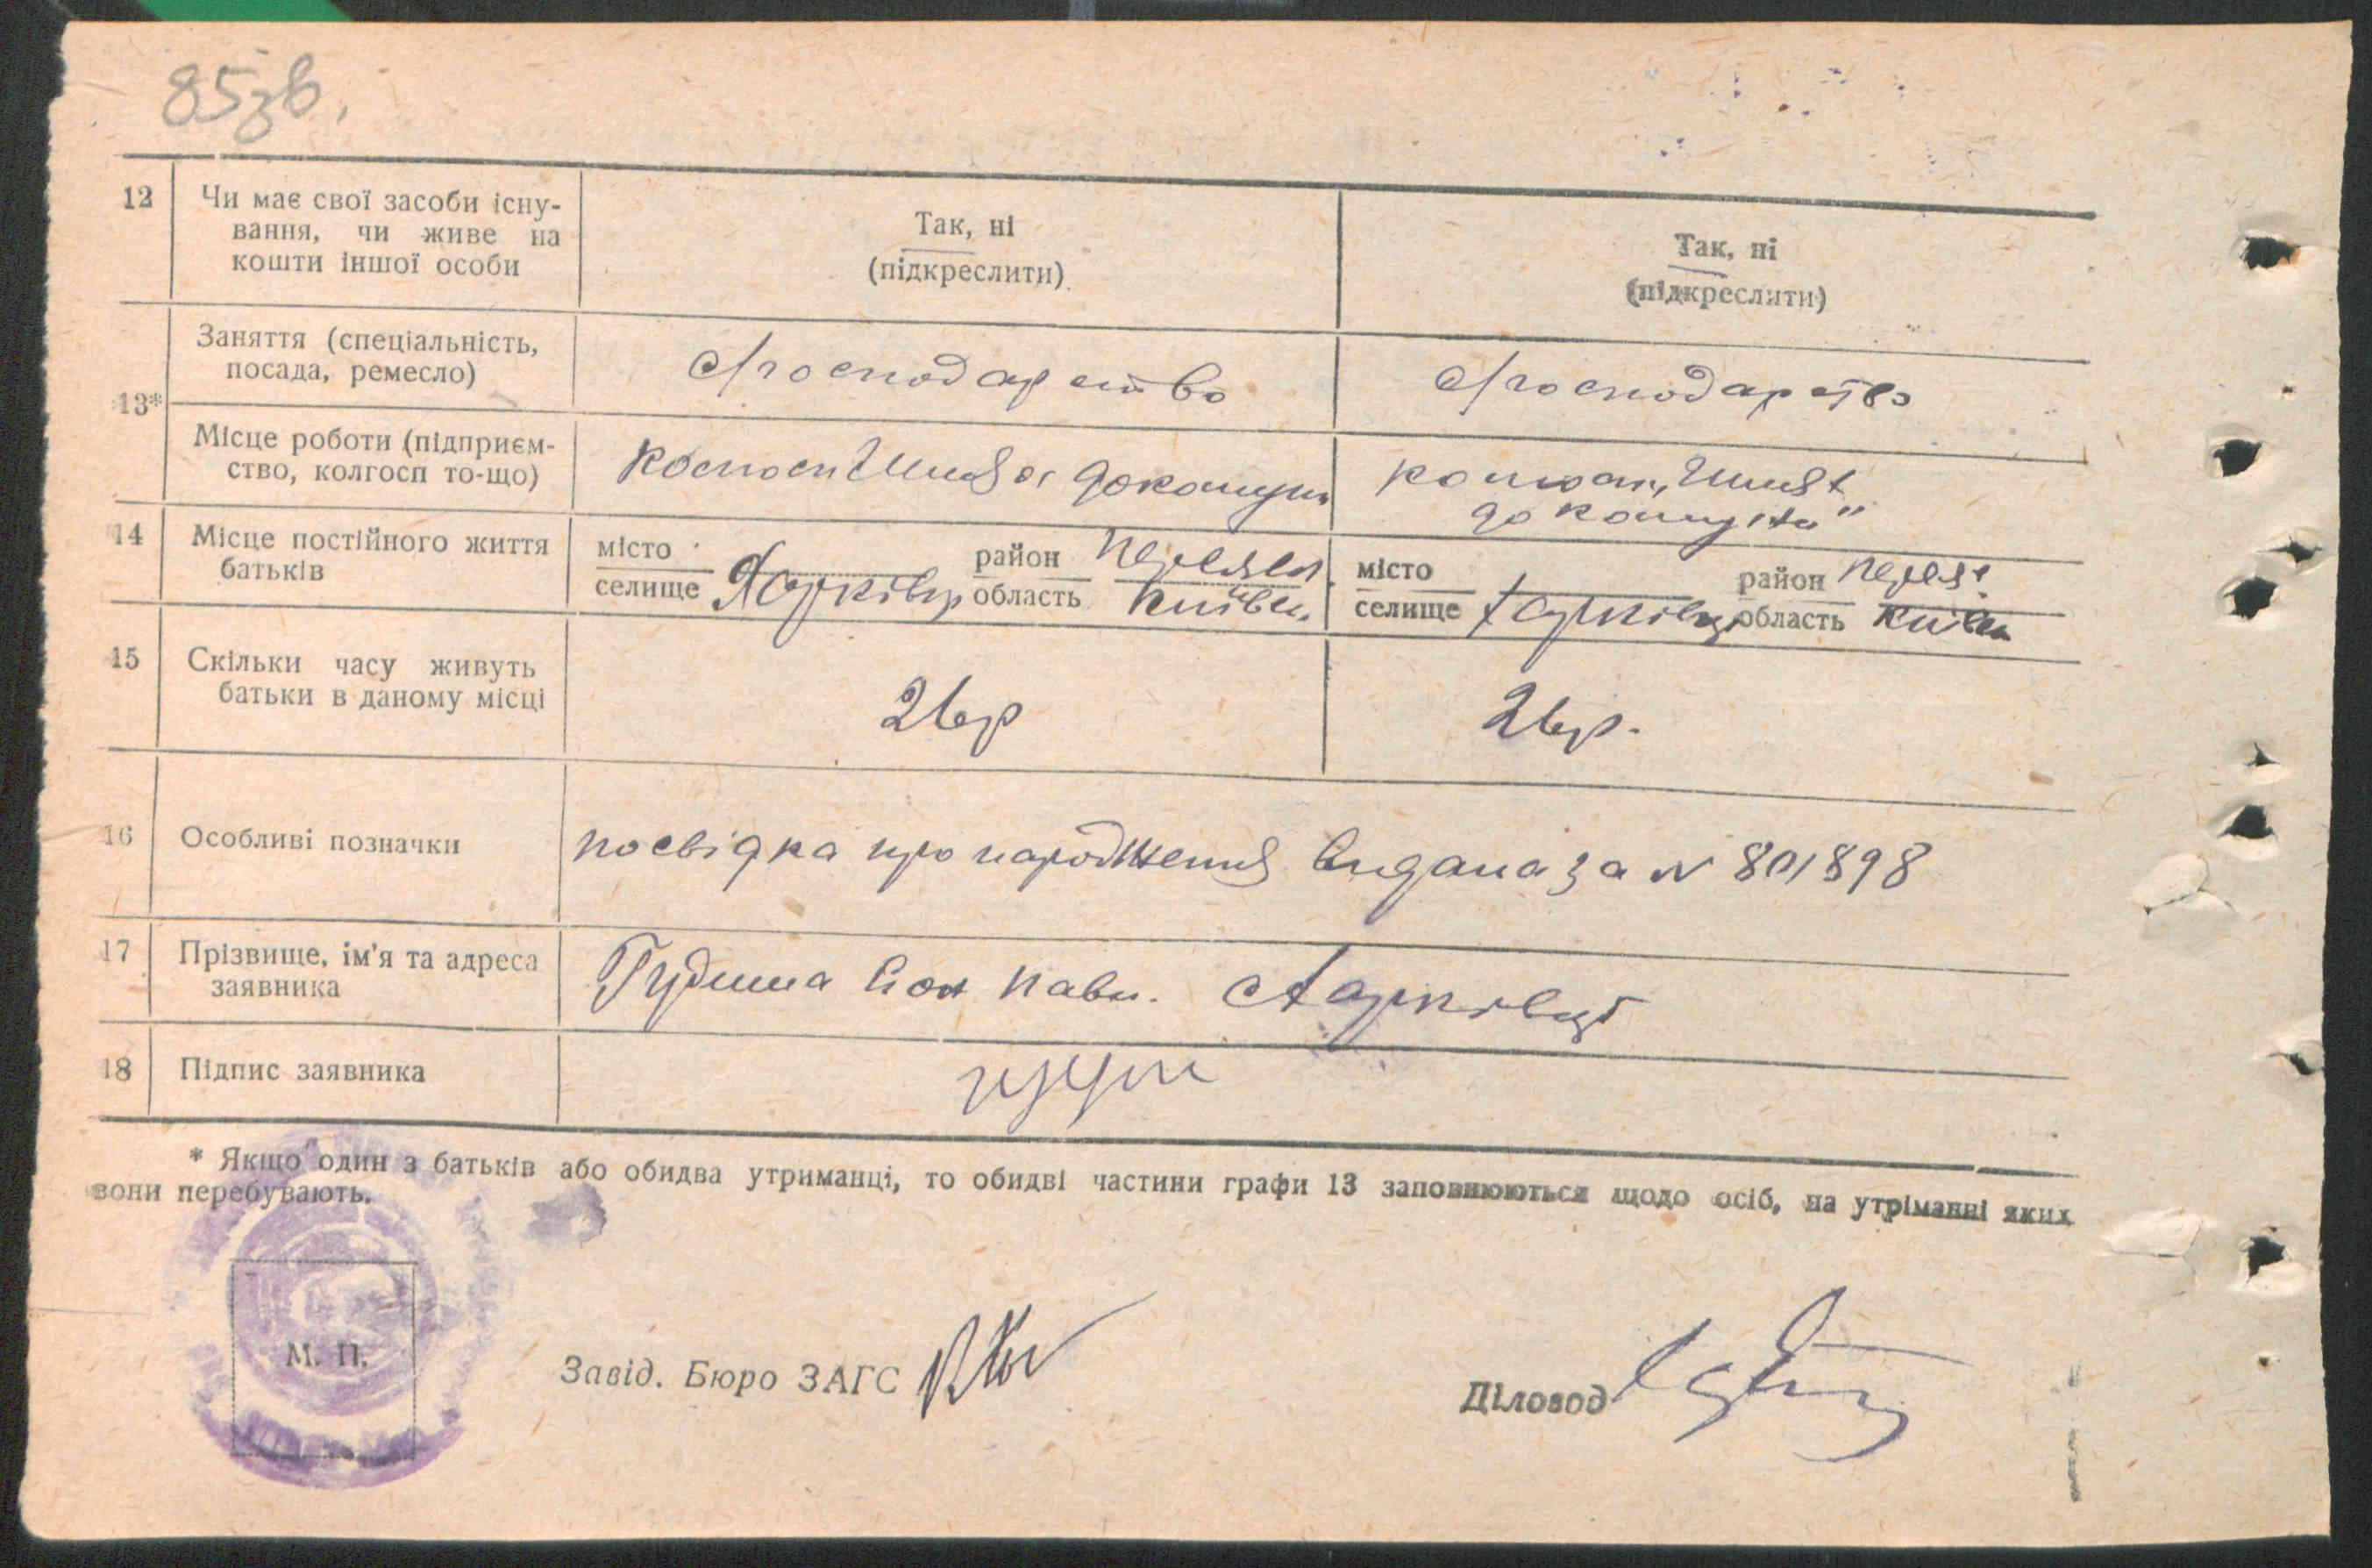 85зв.
12 Чи має свої засоби існу-
вання, чи живе на
кошти іншої особи
Так, ні
(підкреслити)
Так, ні
(підкреслити)
13*
Заняття (спеціальність,
посада, ремесло)
с/господарство
с/господарство
Місце роботи (підприєм-
ство, колгосп то-що)
Шлях до комуни
Шлях
до комуни"
14 Місце постійного життя
батьків
місто
селище Харківці
район Переясл.
область Київськ.
місто
селище Харківці
район Переяс.
область Київ
15 Скільки часу живуть
батьки в даному місці
26р
26р.
16 Особливі позначки
посвідка про народження видана за № 801898
17 Прізвище, ім'я та адреса
заявника
Павл. с Харківці
18 Підпис заявника
* Якщо один з батьків або обидва утриманці, то обидві частини графи 13 заповнюються щодо осіб, на утріманні яких
вони перебувають.
М. П.
Завід. Бюро ЗАГС
Діловод